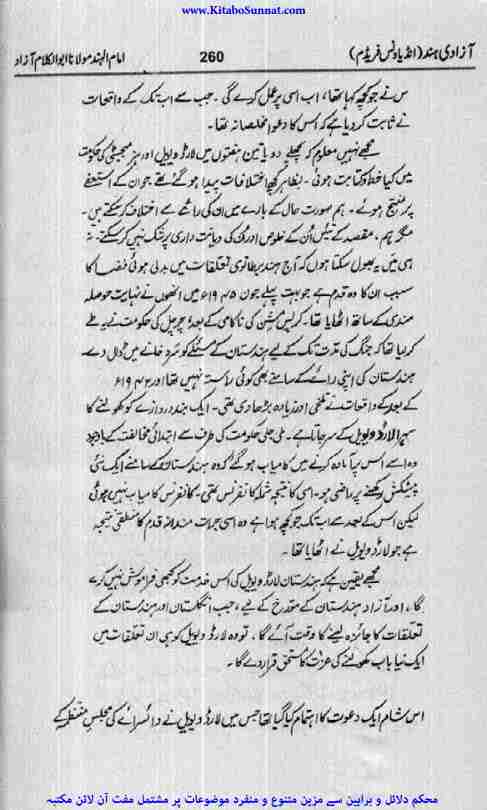 www.KitaboSunnat.com
آزادی ہند (انڈیا ونس فریڈم) 260 امام الہند مولانا ابوالکلام آزاد
س نے جو کچھ کہا تھا، اب اسی پر عمل کرے گی ۔ جب سے اب تک کے واقعات
نے ثابت کر دیا ہے کہ اس کا دعوا مخلصانہ تھا۔
مجھے نہیں معلوم کہ پچھلے دو یا تین ہفتوں میں لارڈ ویویل اور ہز میجسٹی کی حکومت
میں کیا خط و کتابت ہوئی ۔ بظاہر کچھ اختلافات پیدا ہو گئے تھے جو ان کے استعفے
پر منتج ہوئے ۔ ہم صورت حال کے بارے میں ان کی رائے سے اختلاف کر سکتے ہیں۔
مگر ہم، مقصد کے تئیں اُن کے خلوص اور اُن کی دیانت داری پر شک نہیں کر سکتے ۔ نہ
ہی میں یہ بھول سکتا ہوں کہ آج ہند برطانوی تعلقات میں بدلی ہوئی فضا کا
سبب ان کا وہ قدم ہے جو بہت پہلے جون ۱۹۴۵ء میں انھوں نے نہایت حوصلہ
مندی کے ساتھ اٹھایا تھا۔ کرپس مشن کی ناکامی کے بعد، چرچل کی حکومت نے یہ طے
کر لیا تھا کہ جنگ کی مدت تک کے لیے ہندستان کے مسئلے کو سرد خانے میں ڈال دے۔
ہندستان کی اپنی رائے کے سامنے بھی کوئی راستہ نہیں تھا اور ۱۹۴۲ء
کے بعد کے واقعات نے تلخی اور زیادہ بڑھا دی تھی۔ ایک بند دروازے کو کھولنے کا
سہرا لارڈ ویویل کے سر جاتا ہے۔ ملی جلی حکومت کی طرف سے ابتدائی مخالفت کے باوجود
وہ اسے اس پر آمادہ کرنے میں کامیاب ہو گئے کہ وہ ہندستان کے سامنے ایک نئی
پیشکش رکھنے پر راضی ہو۔ اسی کا نتیجہ شملہ کانفرنس تھی۔ کانفرنس کامیاب نہیں ہوئی
لیکن اس کے بعد سے اب تک جو کچھ ہوا ہے وہ اسی جرات مندانہ قدم کا منطقی نتیجہ
ہے جو لارڈ ویویل نے اٹھایا تھا۔
مجھے یقین ہے کہ ہندستان لارڈ ویویل کی اس خدمت کو کبھی فراموش نہیں کرے
گا، اور آزاد ہندستان کے مورخ کے لیے، جب انگلستان اور ہندستان کے
تعلقات کا جائزہ لینے کا وقت آئے گا، تو وہ لارڈ ویویل کو ہی ان تعلقات میں
ایک نیا باب کھولنے کی عزت کا مستحق قرار دے گا۔
اس شام ایک دعوت کا اہتمام کیا گیا تھا جس میں لارڈ ویویل نے وائسرائے کی مجلسِ منتظمہ کے
محکم دلائل و براہین سے مزین متنوع و منفرد موضوعات پر مشتمل مفت آن لائن مکتبہ